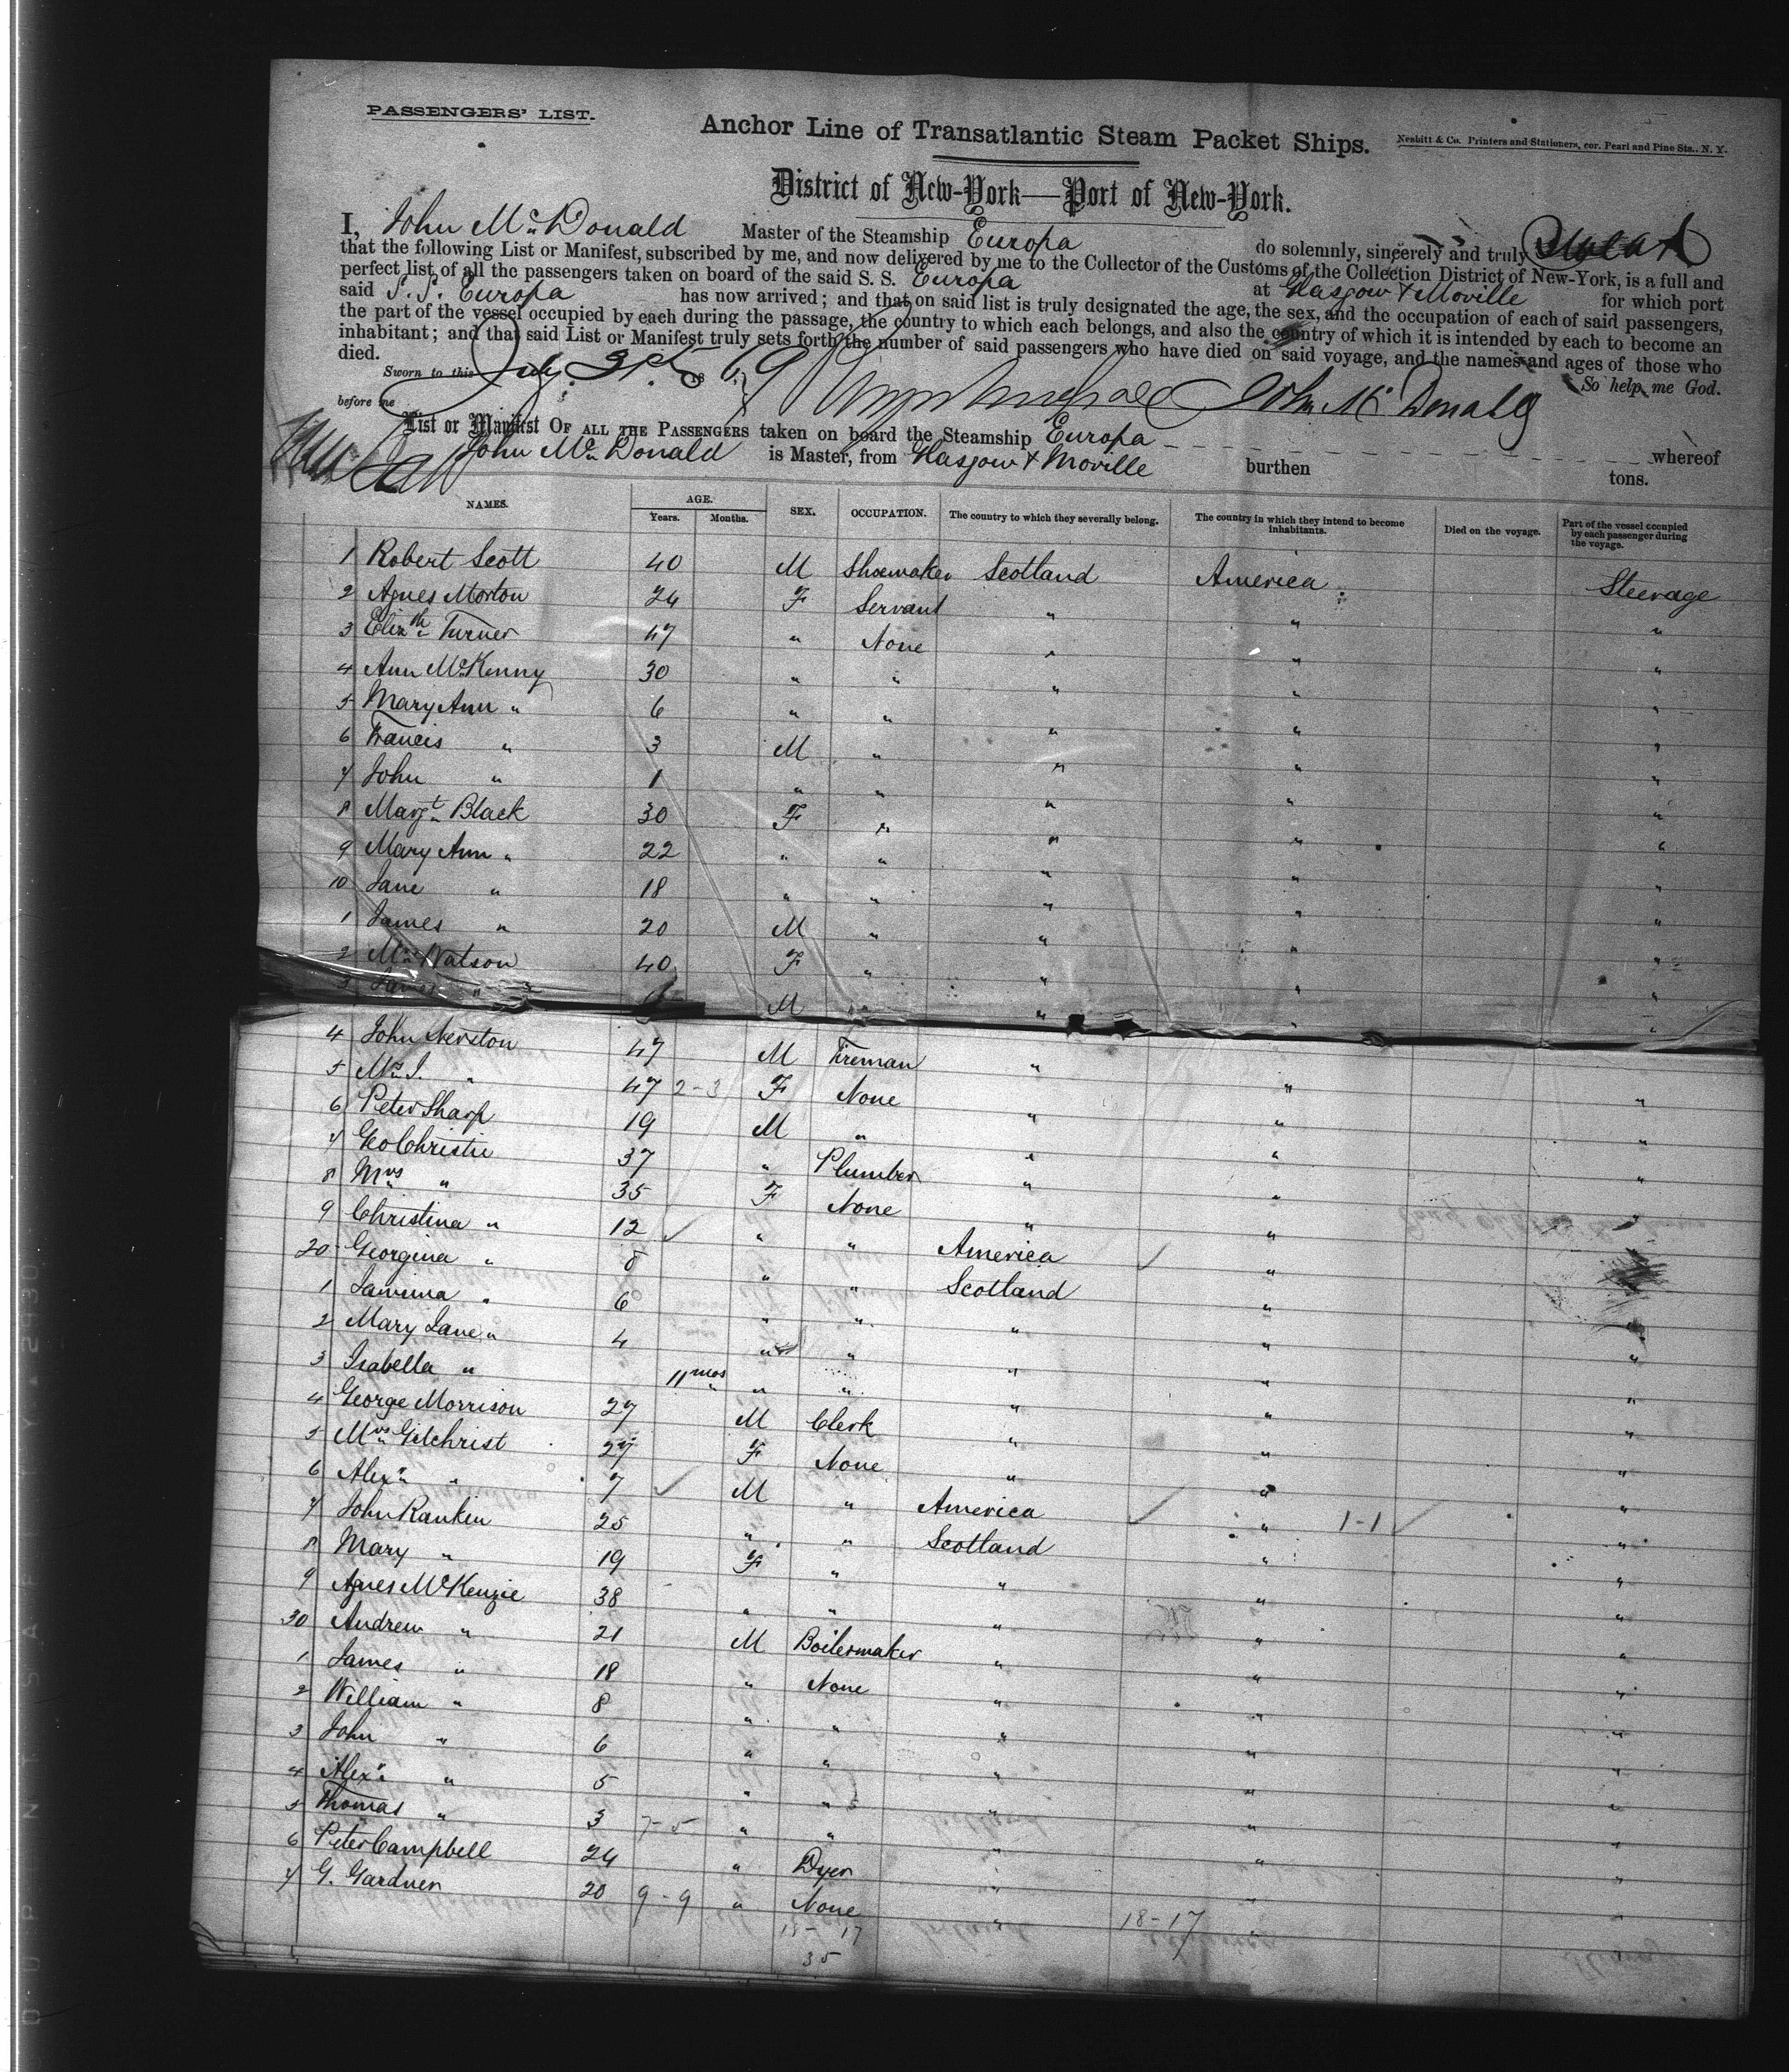 PASSENGERS' LIST.
Anchor Line of Transatlantic Steam Packet Ships.
Nesbitt & Co. Printers and Stationers, cor. Pearl and Pine Sts., N. Y.
District of New-York—Port of New-York.
I, John McDonald Master of the Steamship Europa do solemnly, sincerely and truly swear
that the following List or Manifest, subscribed by me, and now delivered by me to the Collector of the Customs of the Collection District of New-York, is a full and
perfect list of all the passengers taken on board of the said S. S. Europa at Glasgow & Moville for which port
said S. S. Europa has now arrived; and that on said list is truly designated the age, the sex, and the occupation of each of said passengers,
the part of the vessel occupied by each during the passage, the country to which each belongs, and also the country of which it is intended by each to become an
inhabitant; and that said List or Manifest truly sets forth the number of said passengers who have died on said voyage, and the names and ages of those who
died. So help me God.
Sworn to this July 31st 1869 John McDonald
before me
List or Manifest OF ALL THE PASSENGERS taken on board the Steamship Europa whereof
John McDonald is Master, from Glasgow & Moville burthen tons.
NAMES. AGE. Years. Months. SEX. OCCUPATION. The country to which they severally belong. The country in which they intend to become inhabitants. Died on the voyage. Part of the vessel occupied by each passenger during the voyage.
1 Robert Scott 40 M Shoemaker Scotland America Steerage
2 Agnes Morton 24 F Servant " " "
3 Elizth Turner 47 " None " " "
4 Ann McKenny 30 " " " " "
5 Mary Ann " 6 " " " " "
6 Francis " 3 M " " " "
7 John " 1 " " " " "
8 Margt Black 30 F " " " "
9 Mary Ann " 22 " " " " "
10 Jane " 18 " " " " "
1 James " 20 M " " " "
2 Mrs Watson 40 F " " " "
3 James " M " " " "
4 John Nerston 47 M Fireman " " "
5 Mrs J. " 47 2-3 F None " " "
6 Peter Sharp 19 M " " " "
7 Geo Christie 37 " Plumber " " "
8 Mrs " 35 F None " " "
9 Christina " 12 " " America " "
20 Georgina " 8 " " Scotland " "
1 Jamima " 6 " " " " "
2 Mary Jane " 4 " " " " "
3 Isabella " 11 mos " " " " "
4 George Morrison 27 M Clerk " " "
5 Mrs Gilchrist 27 F None " " "
6 Alexr " 7 M " America " 1-1 "
7 John Rankin 25 " " Scotland " "
8 Mary " 19 F " " " "
9 Agnes McKenzie 38 " " " " "
30 Andrew " 21 M Boilermaker " " "
1 James " 18 " None " " "
2 William " 8 " " " " "
3 John " 6 " " " " "
4 Alexr " 5 " " " " "
5 Thomas " 3 7-5 " " " " "
6 Peter Campbell 24 " Dyer " " "
7 G. Gardner 20 9-9 " None " 18-17 "
18-17
35